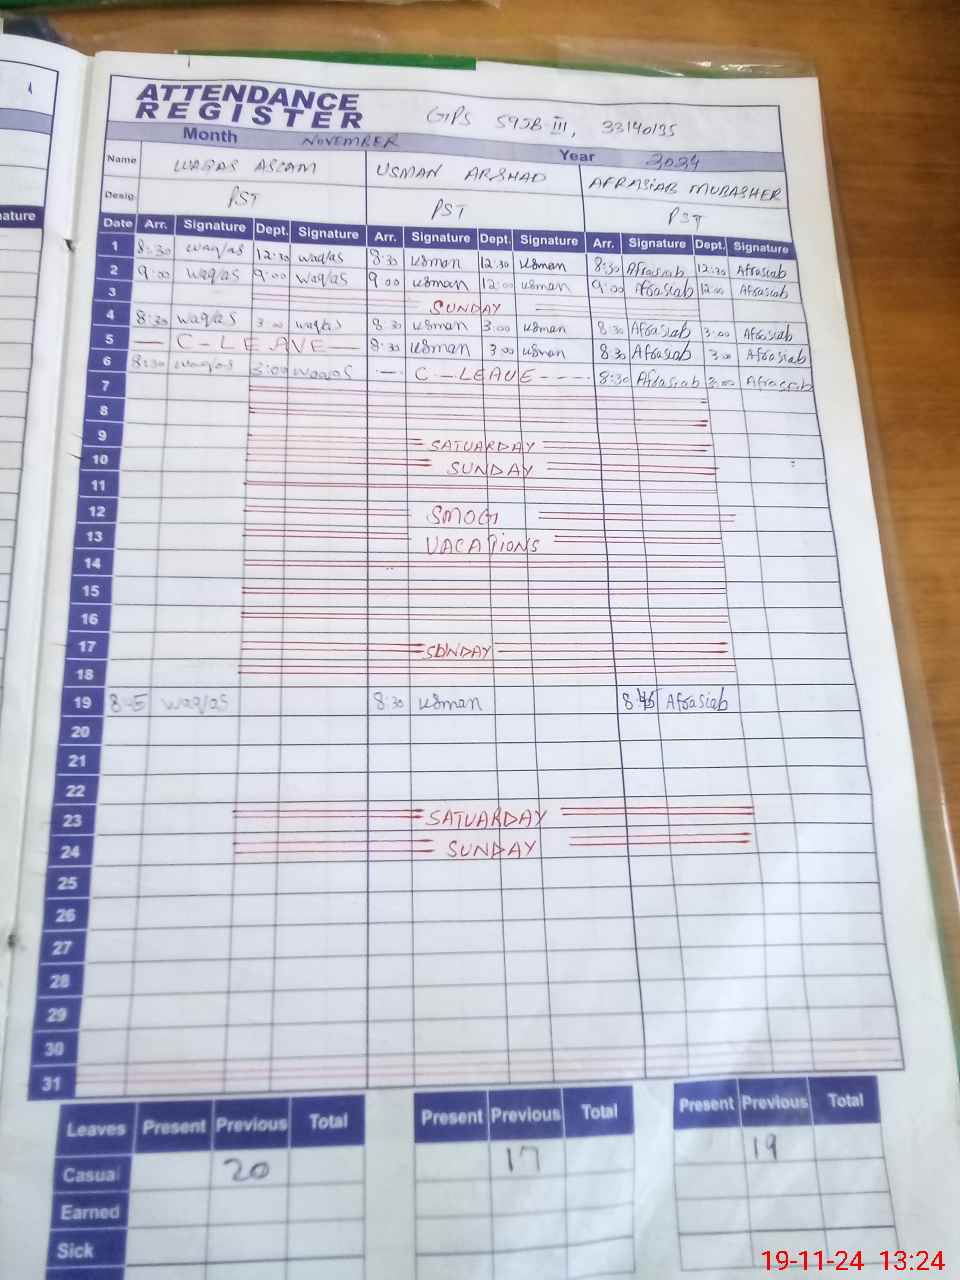 ATTENDANCE
REGISTER
GPS 592B-III, 33140135
Month NOVEMBER Year 2024
Name WAQAS ASLAM USMAN ARSHAD AFRASIAB MUBASHER
Desig. PST PST PST
nature
Date Arr. Signature Dept. Signature Arr. Signature Dept. Signature Arr. Signature Dept. Signature
1 8:30 waq/as 12:30 waq/as 8:30 usman 12:30 usman 8:30 Afrasiab 12:30 Afrasiab
2 9:00 waq/as 9:00 waq/as 9:00 usman 12:00 usman 9:00 Afrasiab 12:00 Afrasiab
3 SUNDAY
4 8:30 waq/as 3:00 waq/as 8:30 usman 3:00 usman 8:30 Afrasiab 3:00 Afrasiab
5 — C-LEAVE — 8:30 usman 3:00 usman 8:30 Afrasiab 3:00 Afrasiab
6 8:30 waq/as 3:00 waq/as — C.-LEAVE ---- 8:30 Afrasiab 3:00 Afrasiab
7
8
9 SATUARDAY
10 SUNDAY
11
12 SMOG
13 VACATIONS
14
15
16
17 SUNDAY
18
19 8:45 waq/as 8:30 usman 8:45 Afrasiab
20
21
22
23 SATUARDAY
24 SUNDAY
25
26
27
28
29
30
31
Leaves Present Previous Total Present Previous Total Present Previous Total
Casual 20 17 19
Earned
Sick
19-11-24 13:24